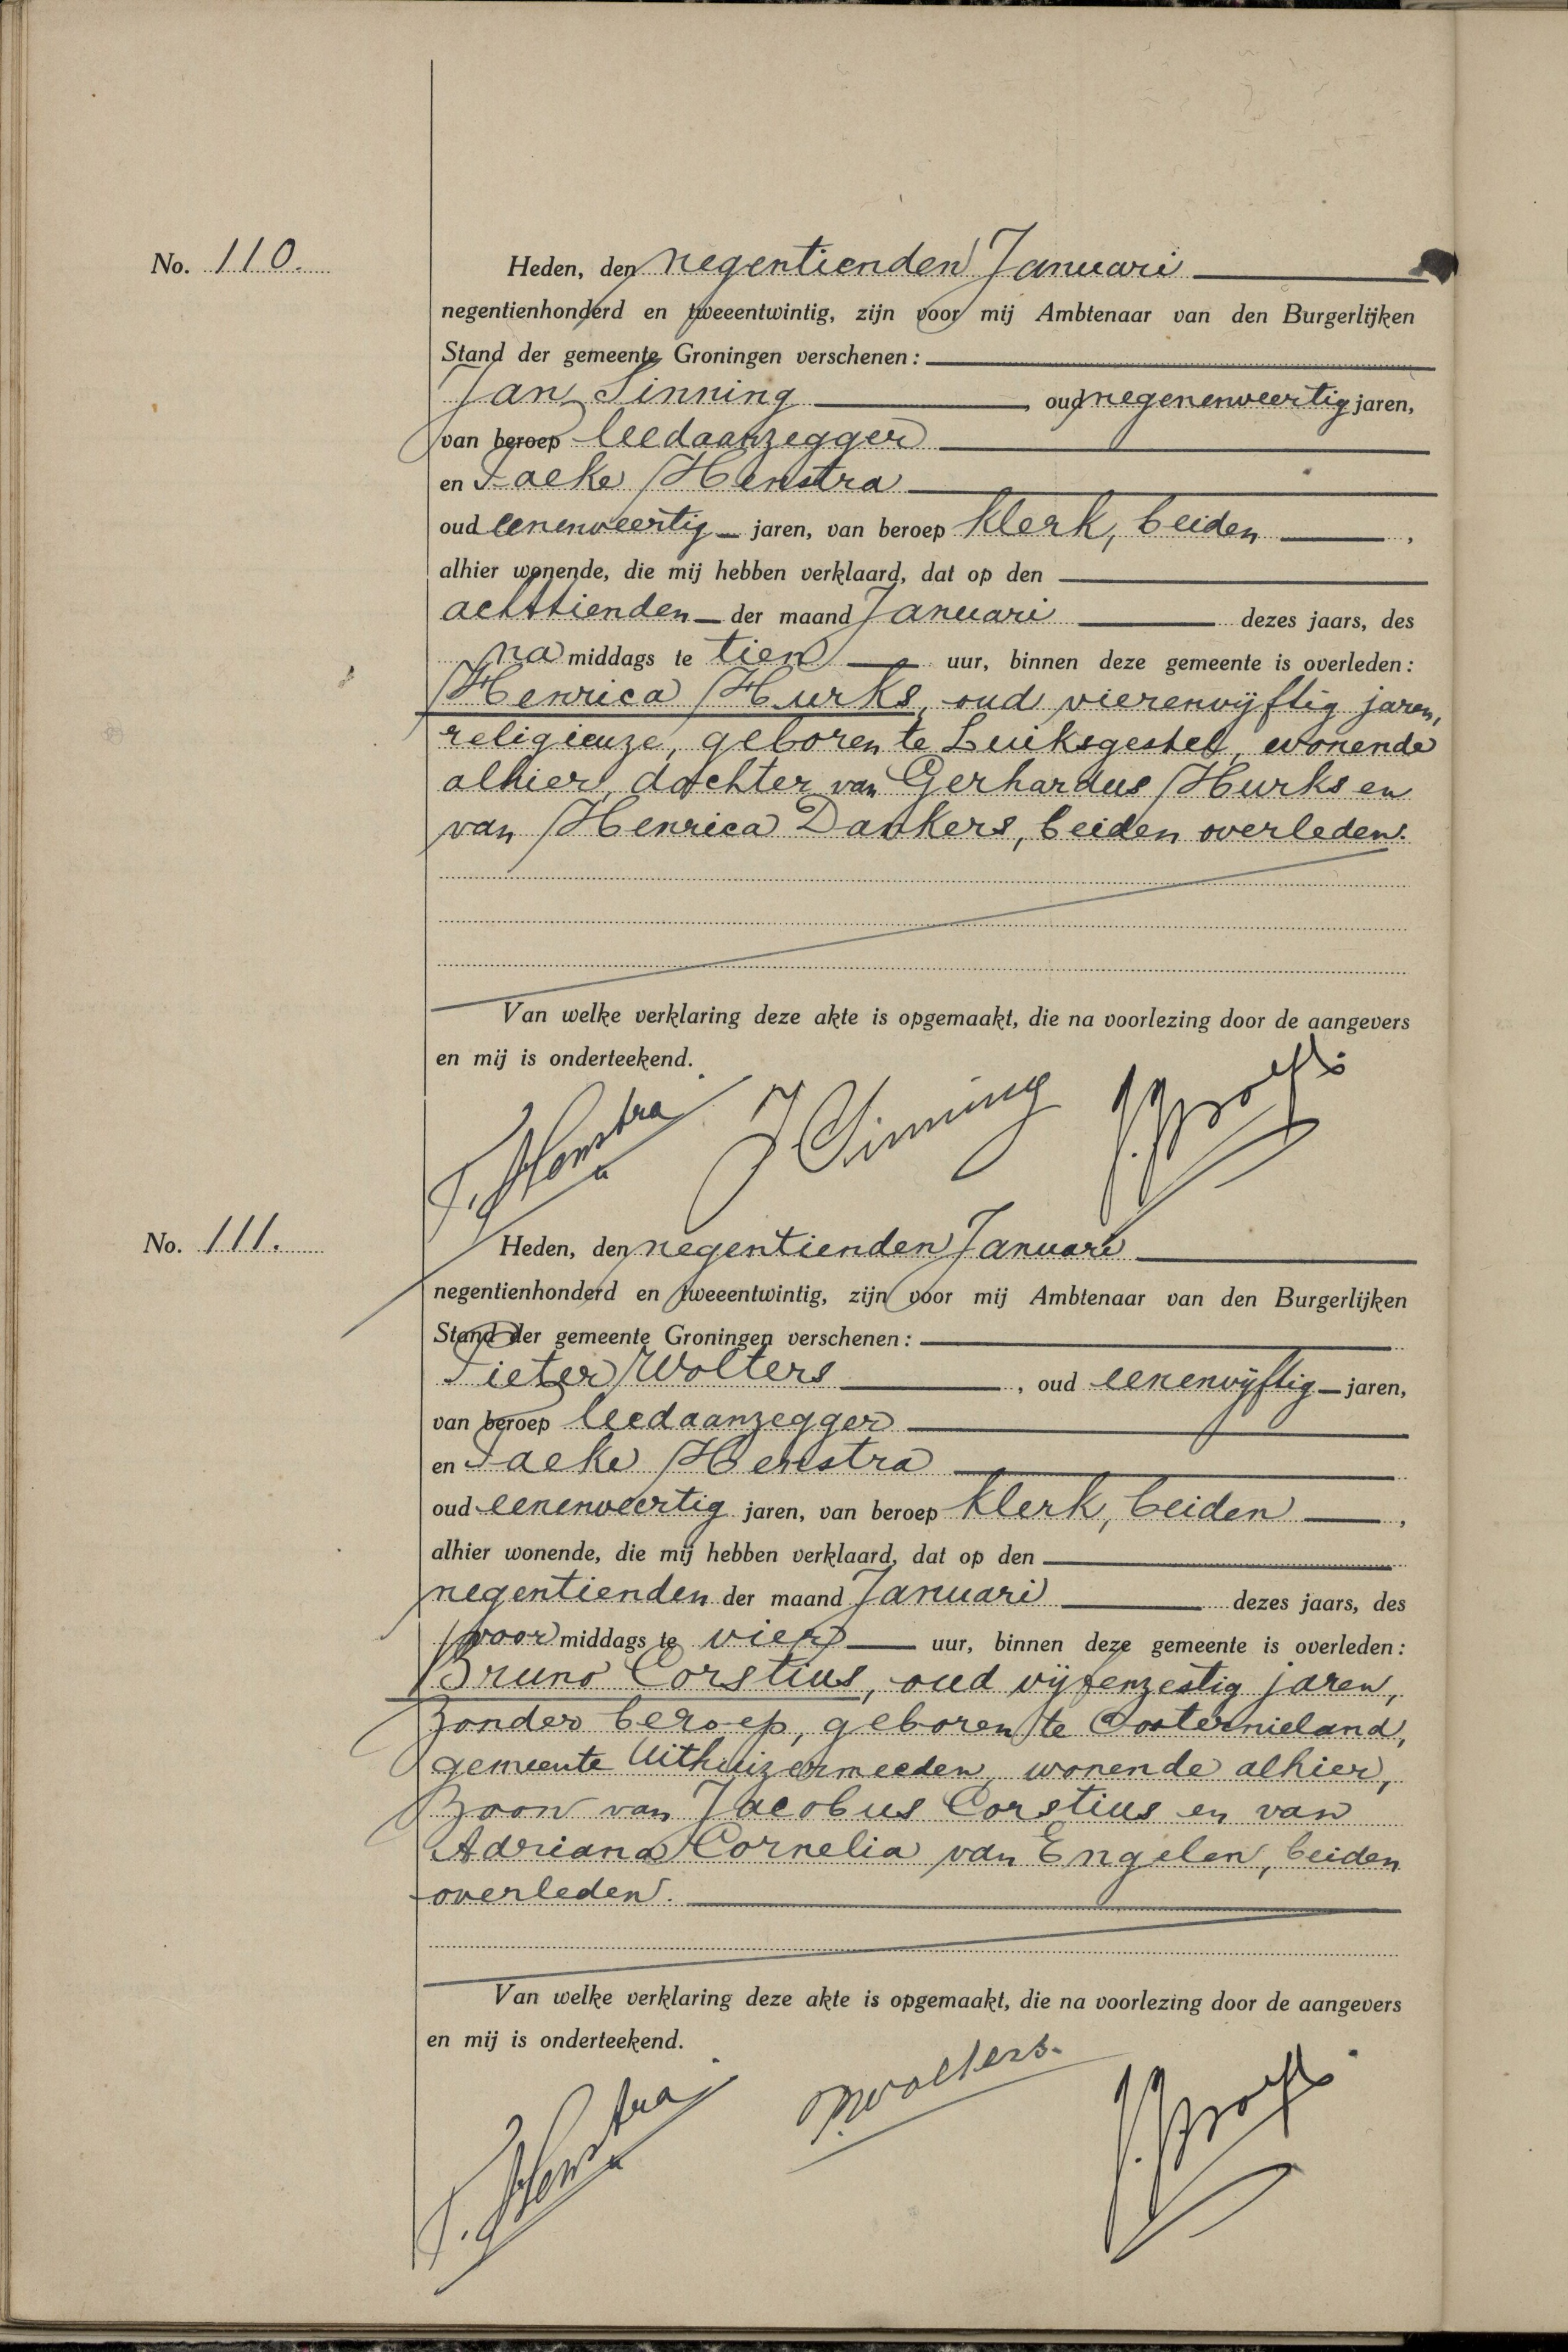 No. 110.
Heden, den negentienden Januari
negentienhonderd en tweeentwintig, zijn voor mij Ambtenaar van den Burgerlijken
Stand der gemeente Groningen verschenen:
Jan Sinning, oud negenenveertig jaren,
van beroep leedaanzegger
en Taeke Henstra
oud eenenveertig jaren, van beroep klerk, beiden,
alhier wonende, die mij hebben verklaard, dat op den
achttienden der maand Januari dezes jaars, des
na middags te tien uur, binnen deze gemeente is overleden:
Henrica Hurks, oud vierenvijftig jaren,
religieuze, geboren te Luiksgestel, wonende
alhier, dochter van Gerhardus Hurks en
van Henrica Dankers, beiden overleden.
Van welke verklaring deze akte is opgemaakt, die na voorlezing door de aangevers
en mij is onderteekend.
T. Henstra J Sinning
No. 111.
Heden, den negentienden Januari
negentienhonderd en tweeentwintig, zijn voor mij Ambtenaar van den Burgerlijken
Stand der gemeente Groningen verschenen:
Pieter Wolters, oud eenenvijftig jaren,
van beroep leedaanzegger
en Taeke Henstra
oud eenenveertig jaren, van beroep klerk, beiden,
alhier wonende, die mij hebben verklaard, dat op den
negentienden der maand Januari dezes jaars, des
voor middags te vier uur, binnen deze gemeente is overleden:
Bruno Corstius, oud vijfenzestig jaren,
zonder beroep, geboren te Oosternieland,
gemeente Uithuizermeeden, wonende alhier,
zoon van Jacobus Corstius en van
Adriana Cornelia van Engelen, beiden
overleden.
Van welke verklaring deze akte is opgemaakt, die na voorlezing door de aangevers
en mij is onderteekend.
T. Henstra P. Wolters.